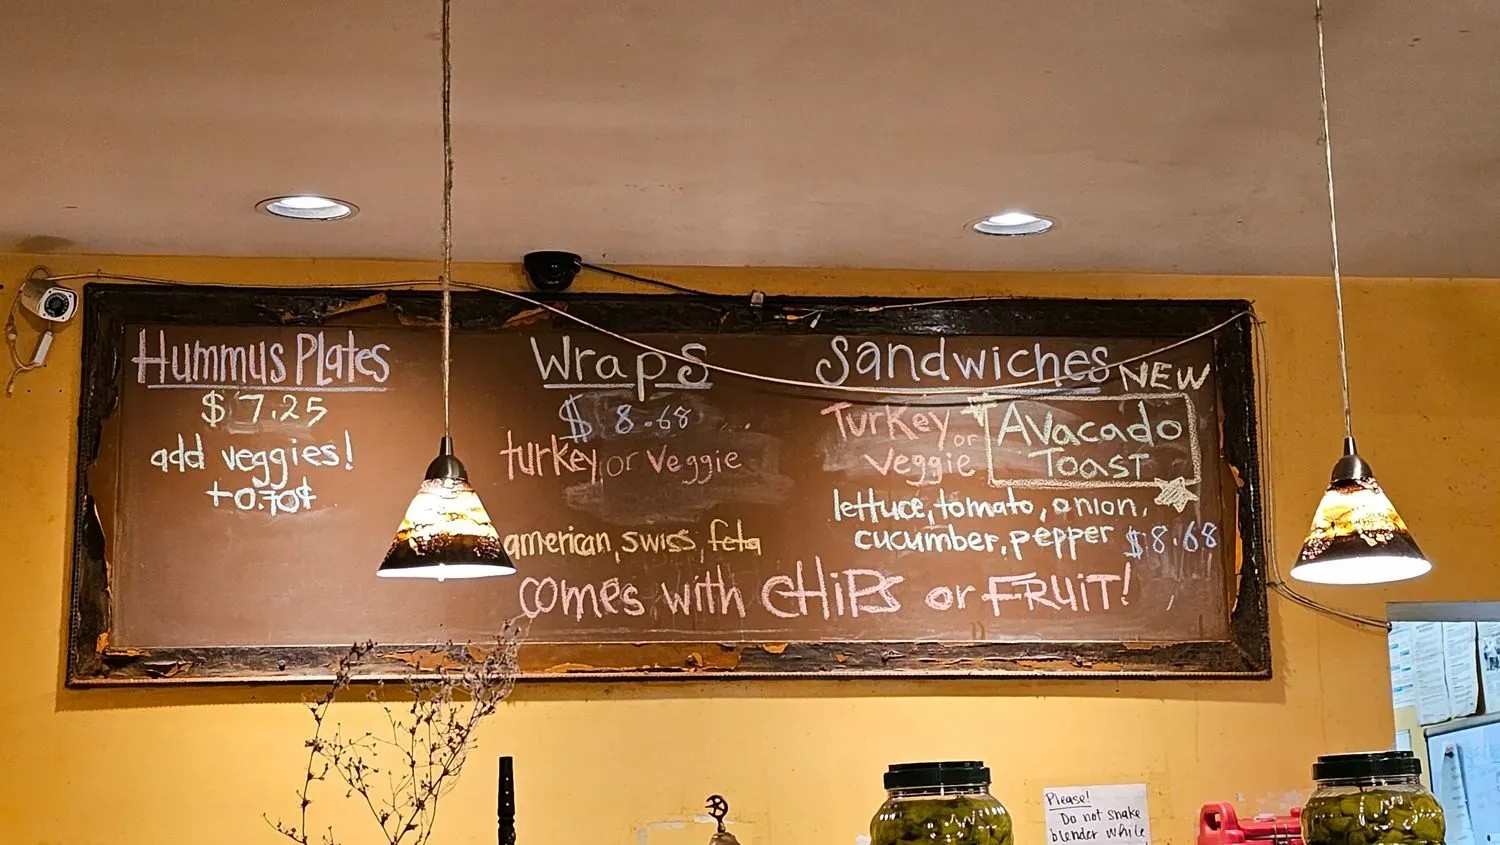 Hummus Plates
$ 7.25
add veggies!
+0.70¢
Wraps
$ 8.68
turkey or veggie
american, swiss, feta
Sandwiches
NEW
Turkey or
Veggie
Avacado
Toast
lettuce, tomato, onion,
cucumber, pepper $8.68
comes with CHIPS or FRUIT!
Please!
Do not shake
blender while